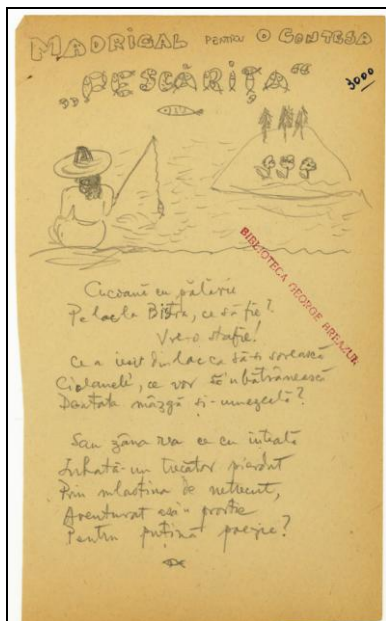 MADRIGAL PENTRU O CONTESA
„PESCĂRIȚA"
3000
BIBLIOTECA GEORGE BREAZUL
Cucoană cu pălărie
Pe lac la Bistra, ce să fie?
Vre-o stafie!
Ce a ieșit din lac ca să-și sorească
Ciolanele, ce vor să 'nbătrânească
De atâta mâzgă și umezeală?
Sau zâna rea ce cu
Înhață-un trecător pierdut
Prin mlaștina de netrecut,
Aventurat prostie
Pentru puțină poezie?